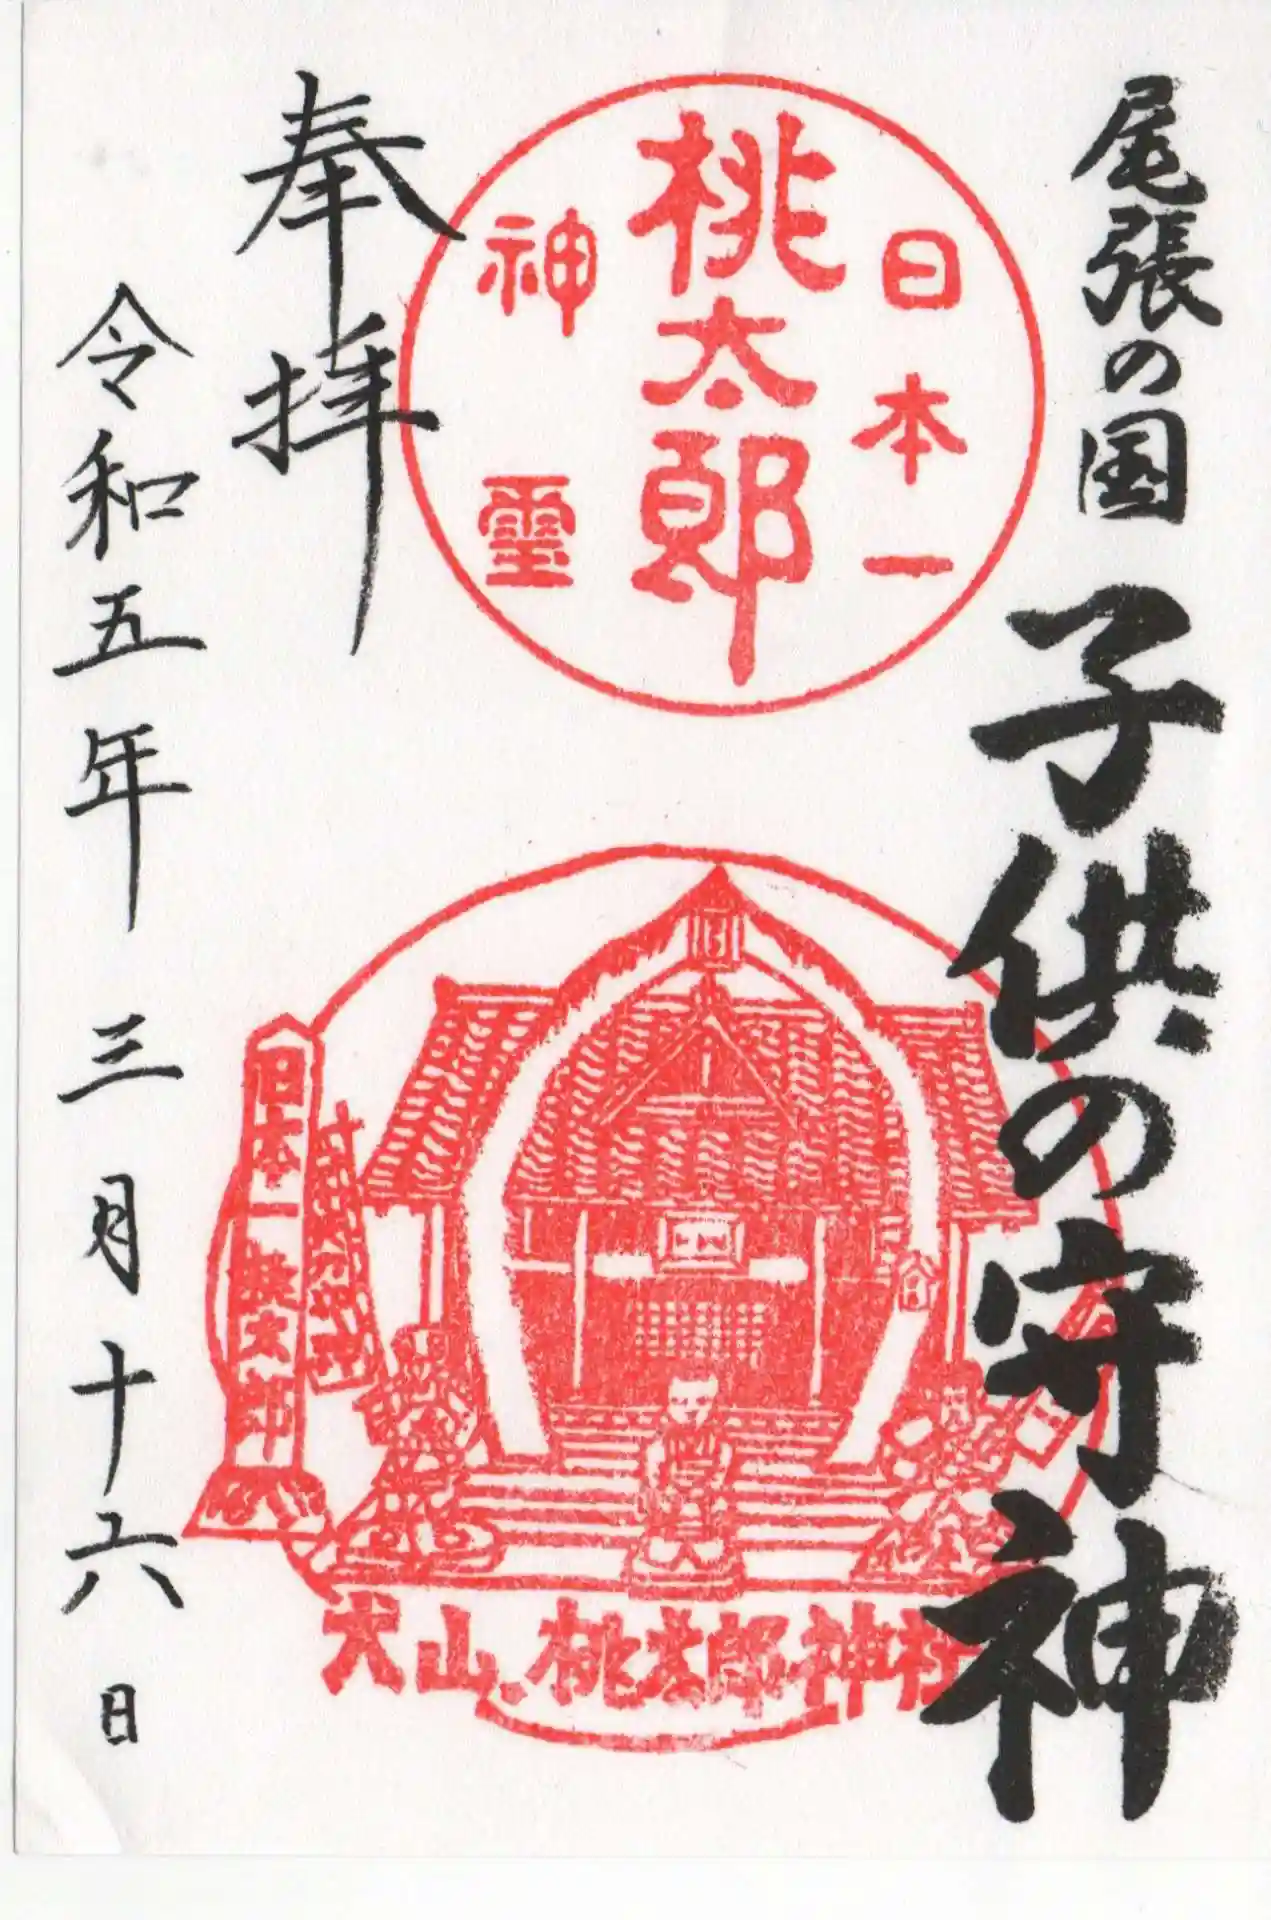 尾張の国
子供の守神
日本一
桃太郎
神霊
奉拝
日本一桃太郎
犬山、桃太郎神社
令和五年三月十六日